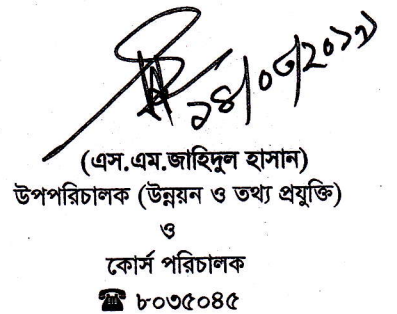 ১৪/০৩/২০১৯
(এস.এম.জাহিদুল হাসান)
উপপরিচালক (উন্নয়ন ও তথ্য প্রযুক্তি)
ও
কোর্স পরিচালক
☎ ৮০৩৫০৪৫